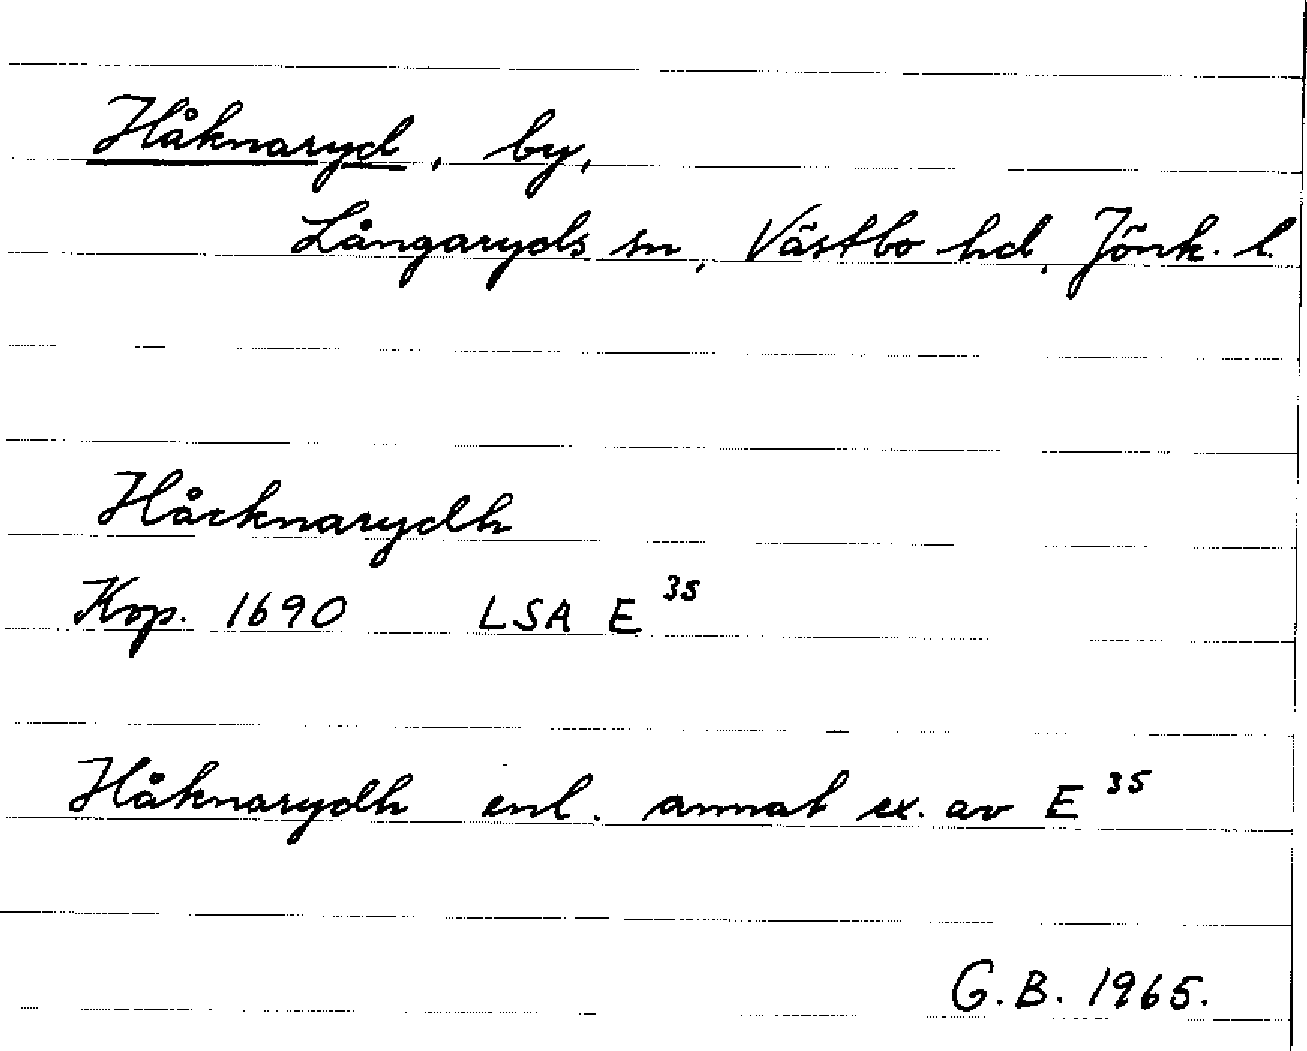 Håknaryd, by,
Långaryds sn, Västbo hd, Jönk. l.
Håcknarydh
Kop. 1690 LSA E 35
Håknarydh enl. annat ex. av E 35
G.B. 1965.